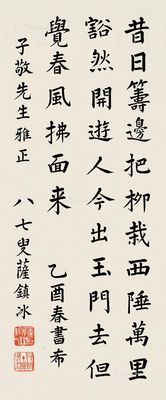 昔日籌邊把柳栽西陲萬里
豁然開遊人今出玉門去但
覺春風拂面来 乙酉春書希
子敬先生雅正 八七叟薩鎮冰